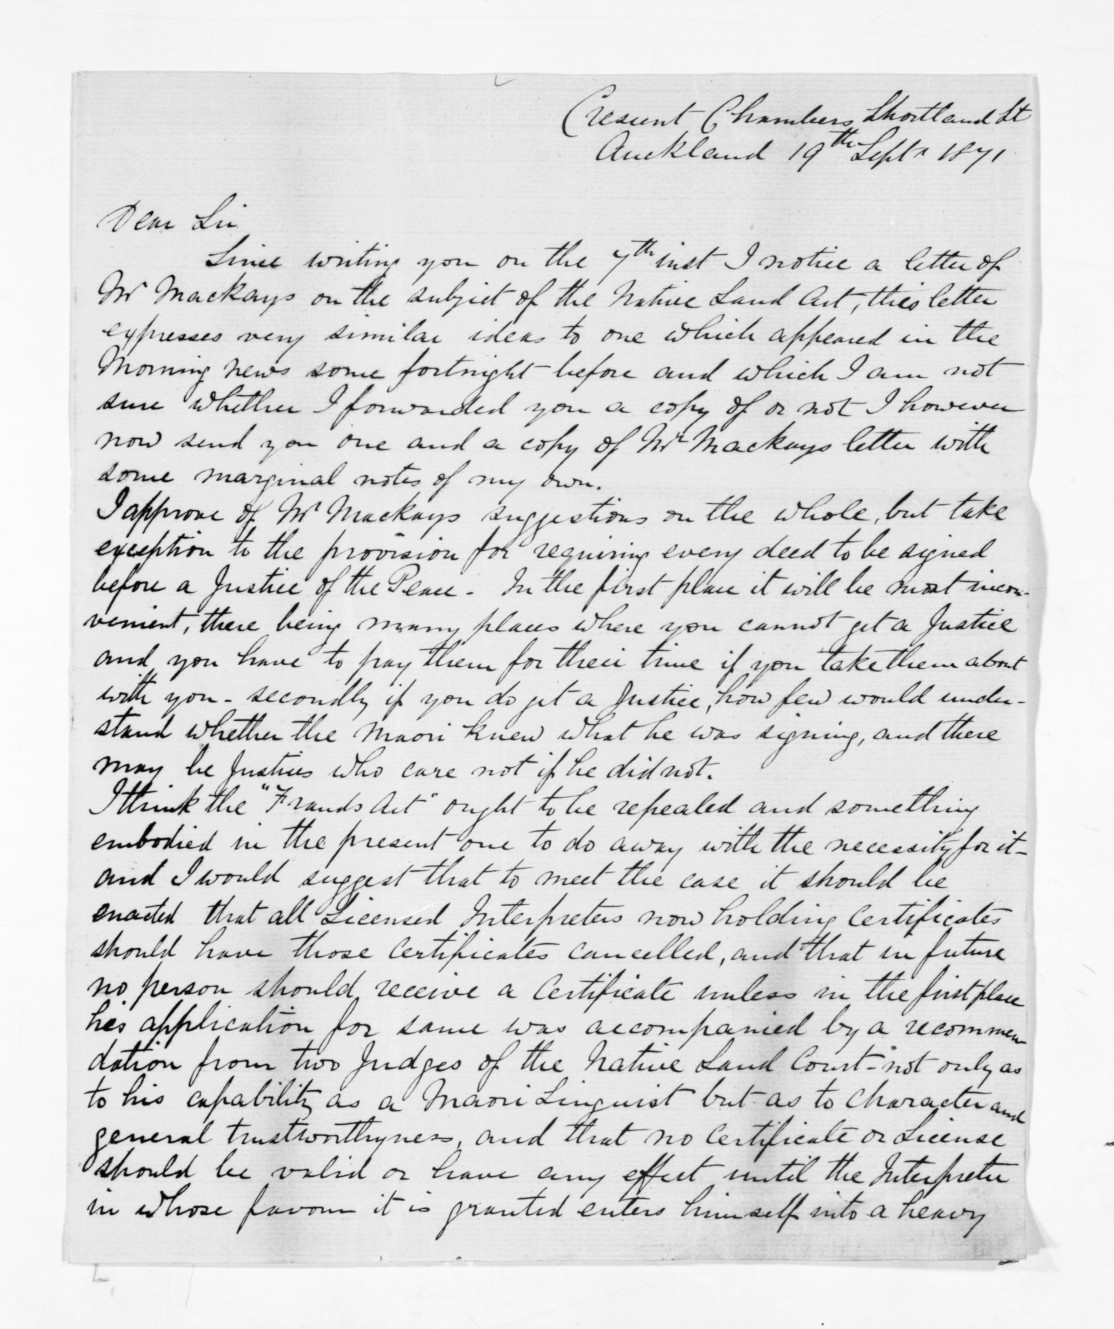 Cresent Chambers Shortland St
Auckland 19th Sept 1871
Dear Sir
Since writing you on the 7th inst I notice a letter of
Mr Mackays on the subject of the Native Land Act, this letter
expresses very similar ideas to one which appeared in the
Morning News some fortnight before and which I am not
sure whether I forwarded you a copy of or not I however
now send you one and a copy of Mr Mackays letter with
some marginal notes of my own.
I approve of Mr Mackays suggestions on the whole, but take
exception to the provision for requiring every deed to be signed
before a Justice of the Peace - In the first place it will be most incon-
venient, there being many places where you cannot get a Justice
and you have to pay them for their time if you take them about
with you - secondly if you do get a Justice, how few would under-
stand whether the Maori knew what he was signing, and there
may be Justices who care not if he did not.
I think the "Frauds Act" ought to be repealed and something
embodied in the present one to do away with the necessity for it -
and I would suggest that to meet the case it should be
enacted that all Licensed Interpreters now holding certificates
should have those certificates cancelled, and that in future
no person should receive a certificate unless in the first place
his application for same was accompanied by a recommen
dation from two Judges of the Native Land Court - not only as
to his capability as a Maori Linguist but as to character and
general trustworthyness, and that no certificate or License
should be valid or have any effect until the Interpreter
in whose favour it is granted enters himself into a heavy